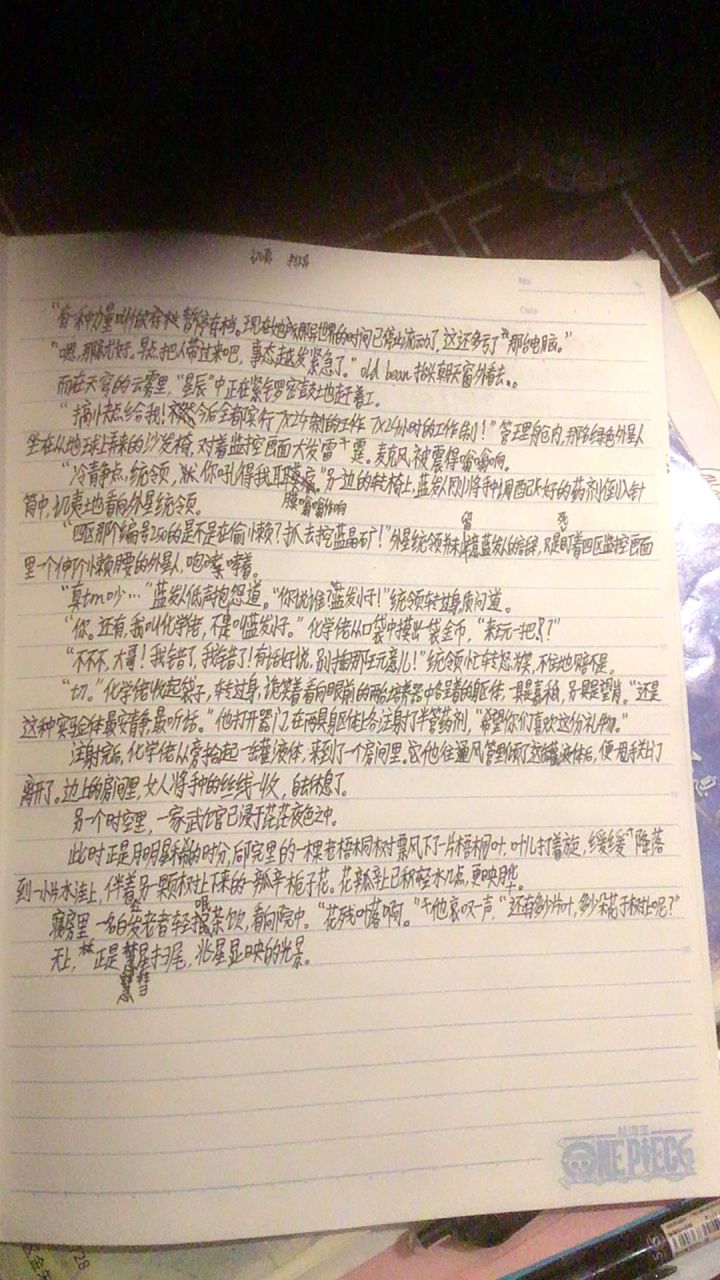 讥鬻
No.
Date
“有一种力量叫做 暂停存档。现在她所那层世界的时间已停止流动了，这还多亏了“那台电脑。”
“嗯，那就好。早点把人带过来吧，事态越发紧急了。”old bean抬头朝天窗外看去。
而在天穹的云雾里，“星辰”中正在紧锣密鼓地赶着工。
“搞快点给我！今后全都实行7X24制的工作 7X24小时的工作制！”管理舱内，那名绿色外星人
坐在从地球上弄来的沙发椅，对着监控画面大发雷霆。麦克风被震得嗡嗡响。
“冷静点，统领，你吼得我耳膜嗡嗡作响”另一边的转椅上，蓝发人刚将手中调配好的药剂倒入针
筒中，讥夷土地看向外星统领。
“四区那个编号250的是不是在偷小懒？抓去挖蓝晶矿！”外星统领并未留意蓝发人的言辞，只是死盯着四区监控画面
里一个伸个小懒腰的外星人，咆哮着。
“真tm吵…”蓝发人低声抱怨道。“你说谁？蓝发小子！”统领转过身质问道。
“你。还有，我叫化学佬，不是叫蓝发小子。”化学佬从口袋中摸出一袋金币，“来玩一把？”
“不不不，大哥！我错了，我错了！有话好说，别掏那玩意儿！”统领忙转怒为笑，不住地赔不是。
“切。”化学佬收起袋子，转过身，诡笑着看向眼前的两台培养器中各呈着的躯体，一具是嘉和，另一具是望肖。“还是
这种实验体最安静，最听话。”他打开器门，在两具躯体上各注射了半管药剂，“希望你们喜欢这份礼物。”
注射完后，化学佬从旁抬起一大罐液体，来到了一个房间里。他往通风管里倾了这罐液体后，便甩手关门
离开了。边上的房间里，女人将手中的丝线一收，自去休息了。
另一个时空里，一家武馆已浸于茫茫夜色之中。
此时正是月明星稀的时分，后院里的一棵老梧桐树飘风下了一片梧桐叶，叶儿打着旋，缓缓降落
到一小片水洼上，伴着另一颗树上下来的一瓣辛栀子花。花瓣上已积轻水几点，更映月华。
寝房里一名白发老者轻抿茶饮，看向院中。“花残叶落啊。”他哀叹一声，“还有多少片叶，多少朵花于树上呢？”
天上，正是彗星扫尾，兆星显映的光景。
航海王
ONE PIECE